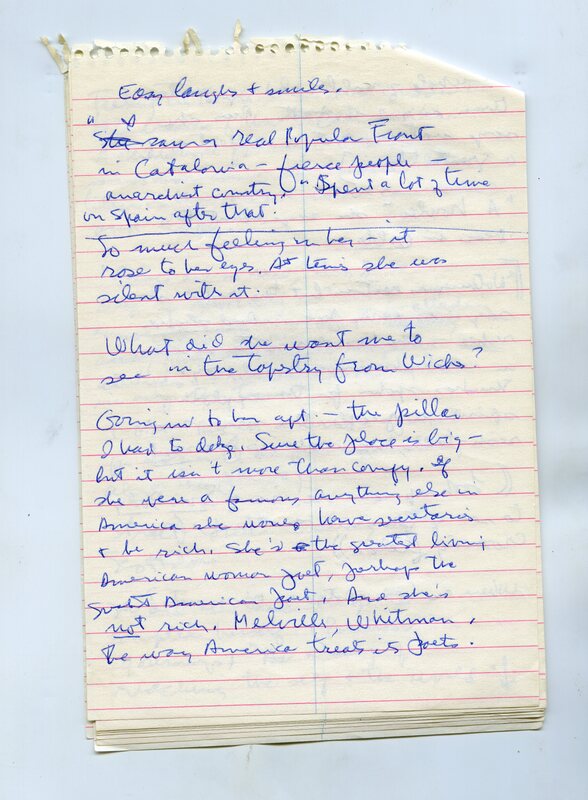 Easy laughs + smiles.
" I
She saw a real Popular Front
in Catalonia – fierce people –
anarchist country." Spent a lot of time
on Spain after that.
So much feeling in her – it
rose to her eyes. At times she was
silent with it.
What did she want me to
see in the tapestry from
Going in to her apt. – the pillar
I had to dodge. Sure the place is big –
but it isn't more than comfy. If
she were a famous anything else in
America she would have secretaries
+ be rich. She's the greatest living
American woman poet, perhaps the
greatest American poet. And she's
not rich. Melville, Whitman,
the way America treats its poets.